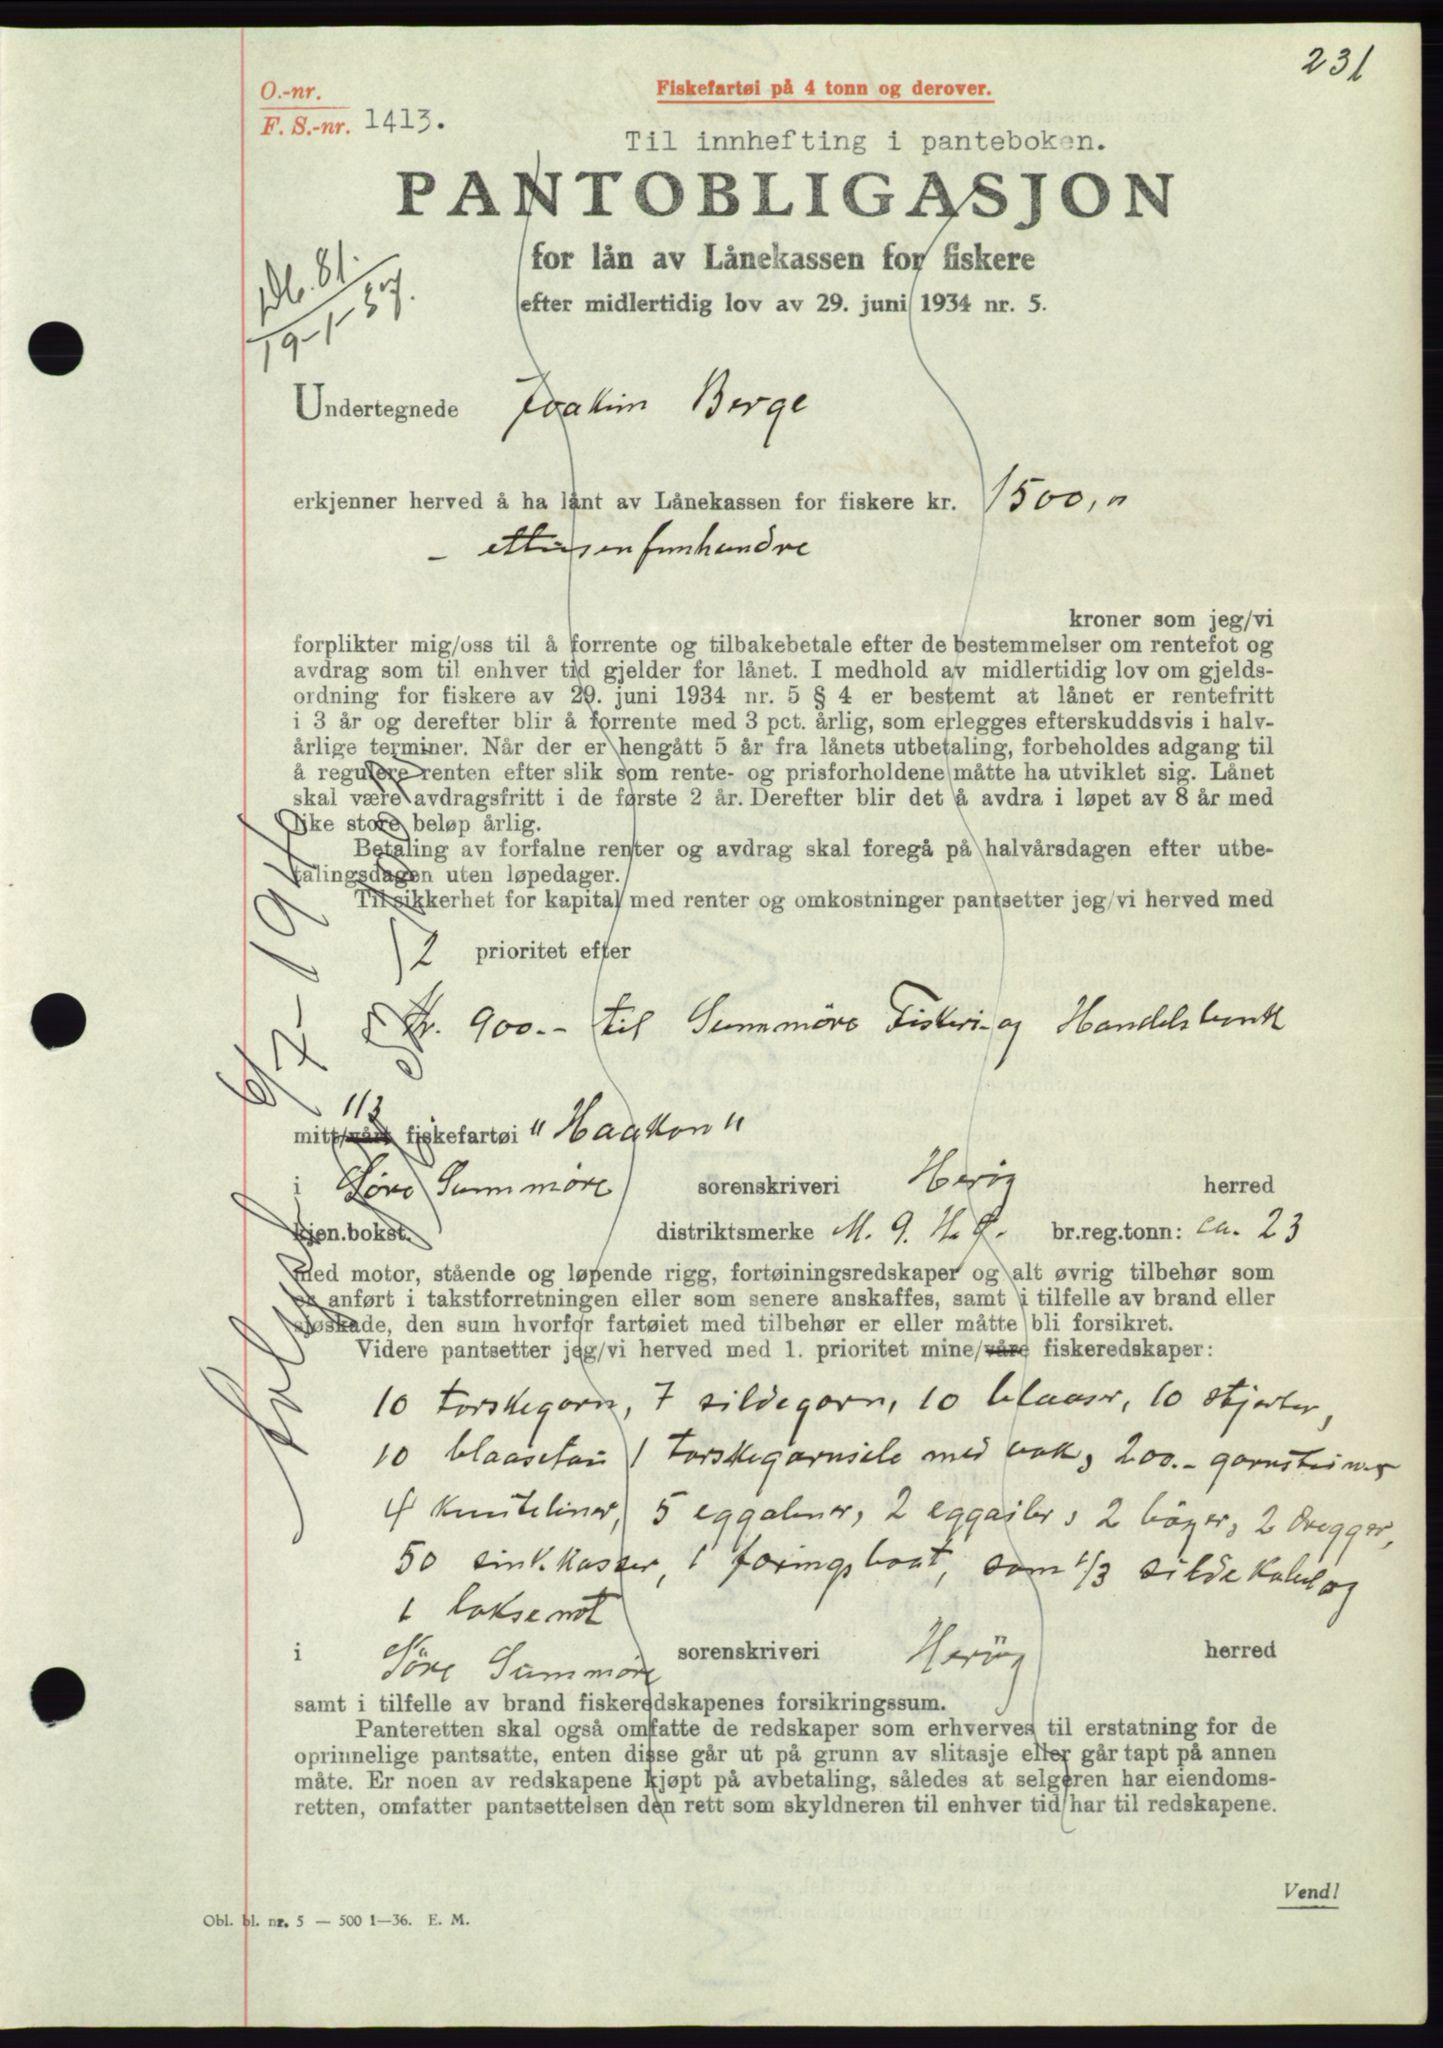 231
O.-nr.
F. S.-nr. 1413.
Fiskefartøi på 4 tonn og derover.
Til innhefting i panteboken.
PANTOBLIGASJON
for lån av Lånekassen for fiskere
efter midlertidig lov av 29. juni 1934 nr. 5.
Db. 81.
19-1-37.
Undertegnede Joakim Berge
erkjenner herved å ha lånt av Lånekassen for fiskere kr. 1500,"
- ettusenfemhundre
kroner som jeg/vi
forplikter mig/oss til å forrente og tilbakebetale efter de bestemmelser om rentefot og
avdrag som til enhver tid gjelder for lånet. I medhold av midlertidig lov om gjelds-
ordning for fiskere av 29. juni 1934 nr. 5 § 4 er bestemt at lånet er rentefritt
i 3 år og derefter blir å forrente med 3 pct. årlig, som erlegges efterskuddsvis i halv-
årlige terminer. Når der er hengått 5 år fra lånets utbetaling, forbeholdes adgang til
å regulere renten efter slik som rente- og prisforholdene måtte ha utviklet sig. Lånet
skal være avdragsfritt i de første 2 år. Derefter blir det å avdra i løpet av 8 år med
like store beløp årlig.
Betaling av forfalne renter og avdrag skal foregå på halvårsdagen efter utbe-
talingsdagen uten løpedager.
Til sikkerhet for kapital med renter og omkostninger pantsetter jeg/vi herved med
2 prioritet efter
Kr. 900.- til Sunnmöre Fiskeri- og Handelsbank
1/3
mitt/vårt fiskefartøi "Haakon"
i Söre Sunnmöre sorenskriveri Heröy herred
kjen.bokst. distriktsmerke M. 9. H.Ö. br.reg.tonn: ca. 23
med motor, stående og løpende rigg, fortøiningsredskaper og alt øvrig tilbehør som
er anført i takstforretningen eller som senere anskaffes, samt i tilfelle av brand eller
sjøskade, den sum hvorfor fartøiet med tilbehør er eller måtte bli forsikret.
Videre pantsetter jeg/vi herved med 1. prioritet mine/våre fiskeredskaper:
10 torskegarn, 7 sildegarn, 10 blaaser, 10 stjerter,
10 blaasetau 1 torskegarnsile med vak, 200.- garnsteiner
4 knuteliner, 5 eggaliner, 2 eggailer, 2 böyer, 2 dregger,
50 sink.kasser, 1 föringsbaat, som 1/3 sildekabel og
1 laksenot
i Söre Sunnmöre sorenskriveri Heröy herred
samt i tilfelle av brand fiskeredskapenes forsikringssum.
Panteretten skal også omfatte de redskaper som erhverves til erstatning for de
oprinnelige pantsatte, enten disse går ut på grunn av slitasje eller går tapt på annen
måte. Er noen av redskapene kjøpt på avbetaling, således at selgeren har eiendoms-
retten, omfatter pantsettelsen den rett som skyldneren til enhver tid har til redskapene.
Vend!
Obl. bl. nr. 5 — 500 1—36. E. M.